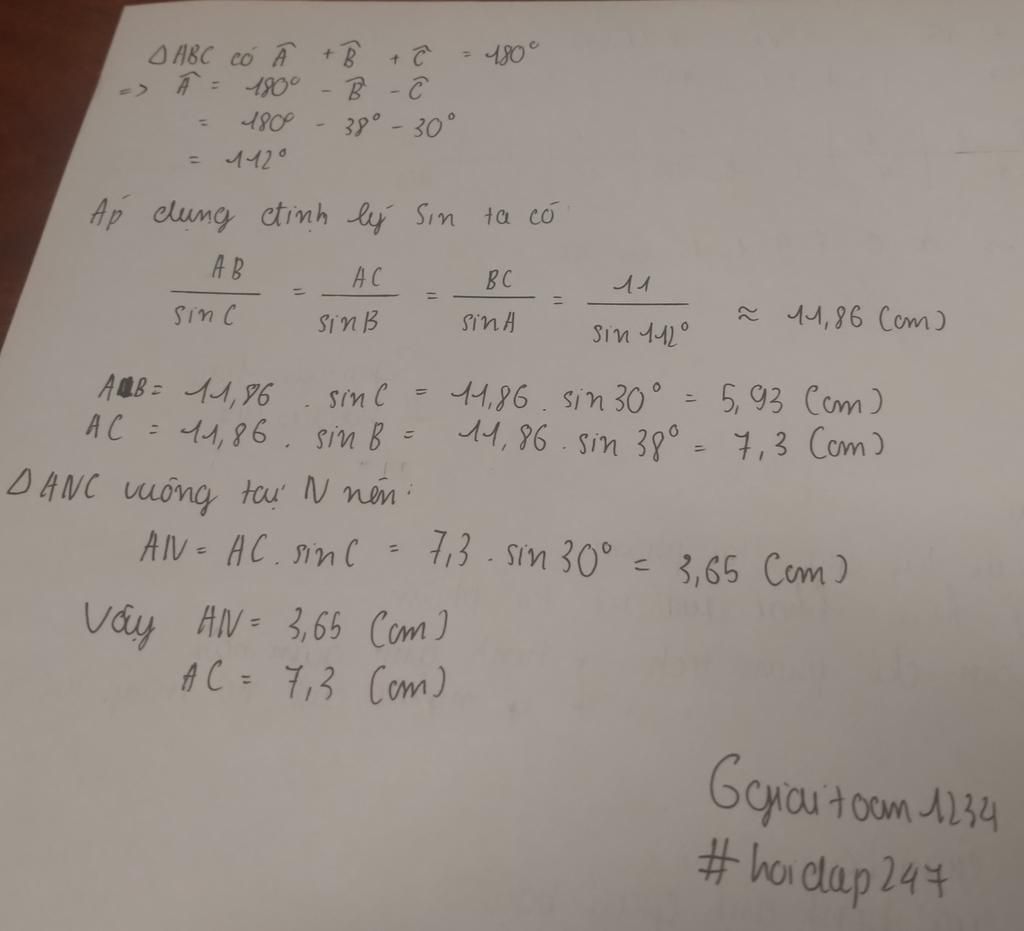 ΔABC có Â + B̂ + Ĉ = 180°
=> Â = 180° - B̂ - Ĉ
= 180° - 38° - 30°
= 112°
Áp dụng định lý sin ta có
AB/sinC = AC/sinB = BC/sinA = 11/sin112° ≈ 11,86 (cm)
AB = 11,86 . sinC = 11,86 . sin30° = 5,93 (cm)
AC = 11,86 . sinB = 11,86 . sin38° = 7,3 (cm)
ΔANC vuông tại N nên:
AN = AC . sinC = 7,3 . sin30° = 3,65 (cm)
Vậy AN = 3,65 (cm)
AC = 7,3 (cm)
Ggiaitoan1234
#hoidap247